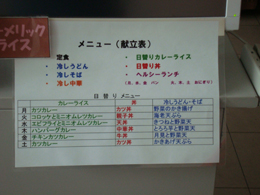 メリック
ライス
メニュー（献立表）
・定食 ・日替りカレーライス
・冷しうどん ・日替り丼
・冷しそば ・ヘルシーランチ
・冷し中華
日替りメニュー
カレーライス 丼 冷しうどん・そば
月 カツカレー カツ丼 野菜のかき揚げ
火 コロッケとミニオムレツカレー 親子丼 海老天ぷら
水 エビフライとミニオムレツカレー 天丼 きつねと野菜天
木 ハンバーグカレー 中華丼 とろろ芋と野菜天
金 チキンカツカレー 牛丼 月見と野菜天
土 カツカレー カツ丼 かきあげ天ぷら